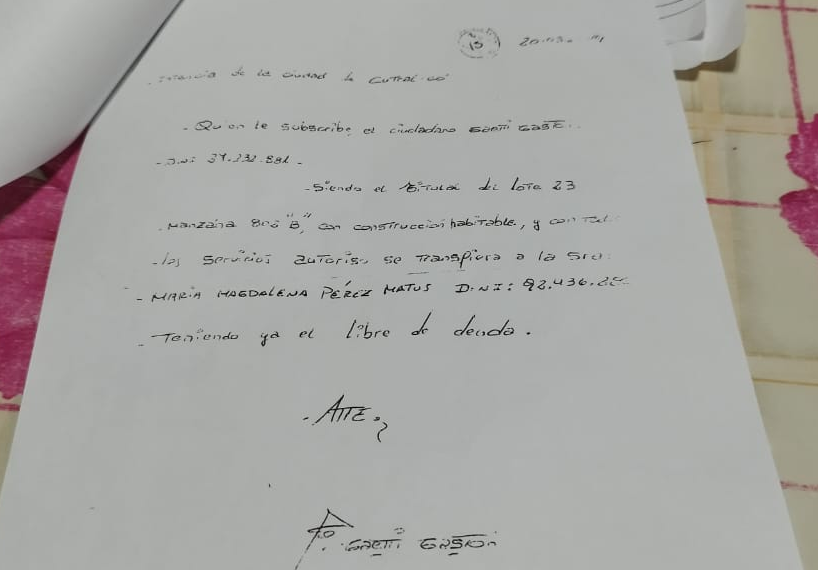 13
de la ciudad de CUTRAL-CO
- Quien le subscribe el ciudadano GAETTI GAST
- D.N.I 37.232.881 -
- Siendo el titular del lote 23
. Manzana 8nº "B", con construccion habitable, y con
- los servicios autoriso se transfiera a la Sra:
- MARIA MAGDALENA PÉREZ MATUS D.N.I: 92.436.
- Teniendo ya el libre de deuda.
- ATTE,
GAETTI GASTON